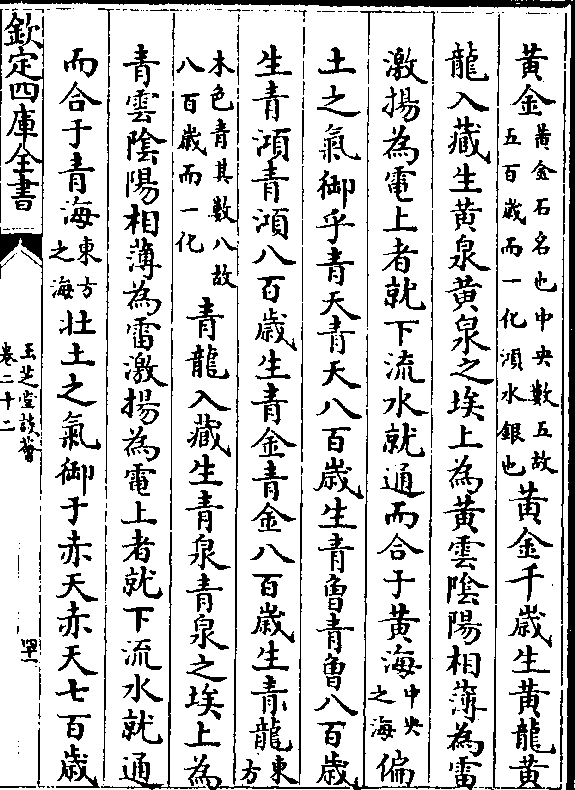 黃金黃金石名也中央數五故
五百歲而一化澒水銀也黃金千歲生黃龍黃
龍入藏生黃泉黃泉之埃上為黃雲陰陽相薄為雷
激揚為電上者就下流水就通而合于黃海中央
之海偏
土之氣御乎青天青天八百歲生青魯青魯八百歲
生青澒青澒八百歲生青金青金八百歲生青龍東
方
木色青其數八故
八百歲而一化青龍入藏生青泉青泉之埃上為
青雲陰陽相薄為雷激揚為電上者就下流水就通
而合于青海東方
之海壯土之氣御于赤天赤天七百歲
欽定四庫全書
玉芝堂談薈
卷二十二